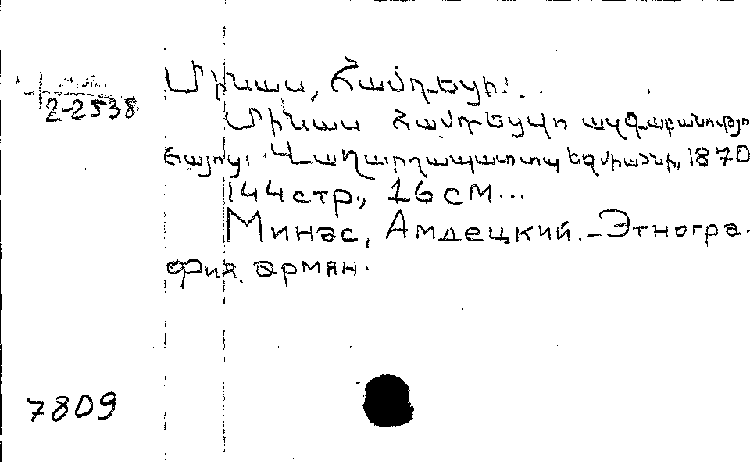 2-2538
Մինաս, Համդեցի.
Մինաս Համդեցվո ազգաբանություն
Հայոց. Վաղարշապատ տպ Եջմիածնի, 1870
144стр., 16см...
Минас, Амдецкий. - Этногра-
фия армян.
7809